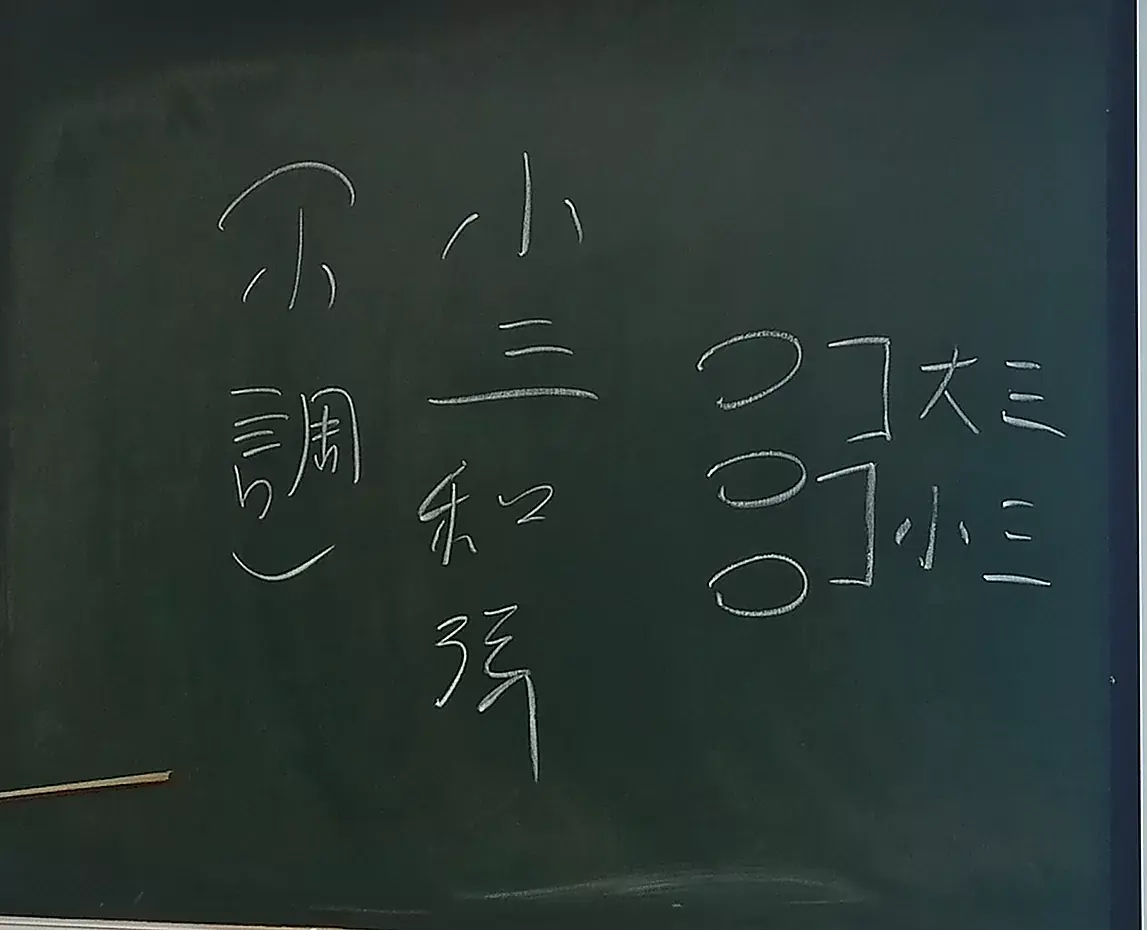 大三
小三
小三和弦
(小調)